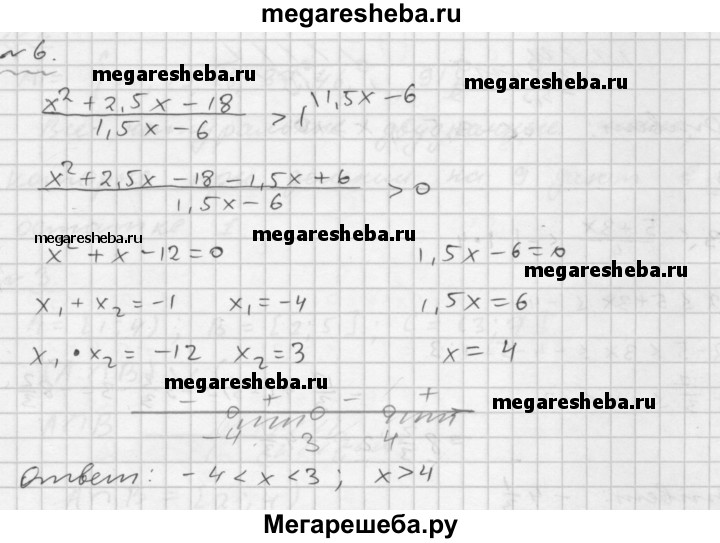 megaresheba.ru
№ 6.
megaresheba.ru
megaresheba.ru
(x² + 2,5x − 18)/(1,5x − 6) > 1 \1,5x − 6
(x² + 2,5x − 18 − 1,5x + 6)/(1,5x − 6) > 0
megaresheba.ru
megaresheba.ru
x² + x − 12 = 0 1,5x − 6 = 0
megaresheba.ru
x₁ + x₂ = −1 x₁ = −4 1,5x = 6
x₁ • x₂ = −12 x₂ = 3 x = 4
megaresheba.ru
− + − +
megaresheba.ru
−4 3 4
Ответ: −4 < x < 3 ; x > 4
Мегарешеба.ру